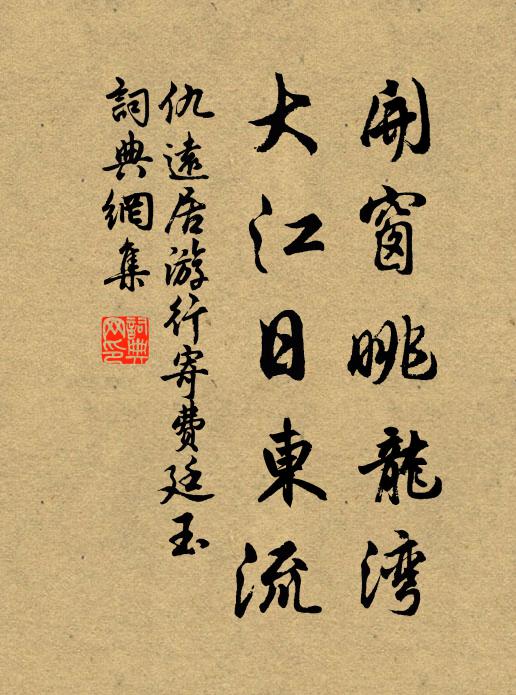 開窗眺龍湾
大江日東流
仇遠居游行寄費廷玉
詞典網集
詞典
网印